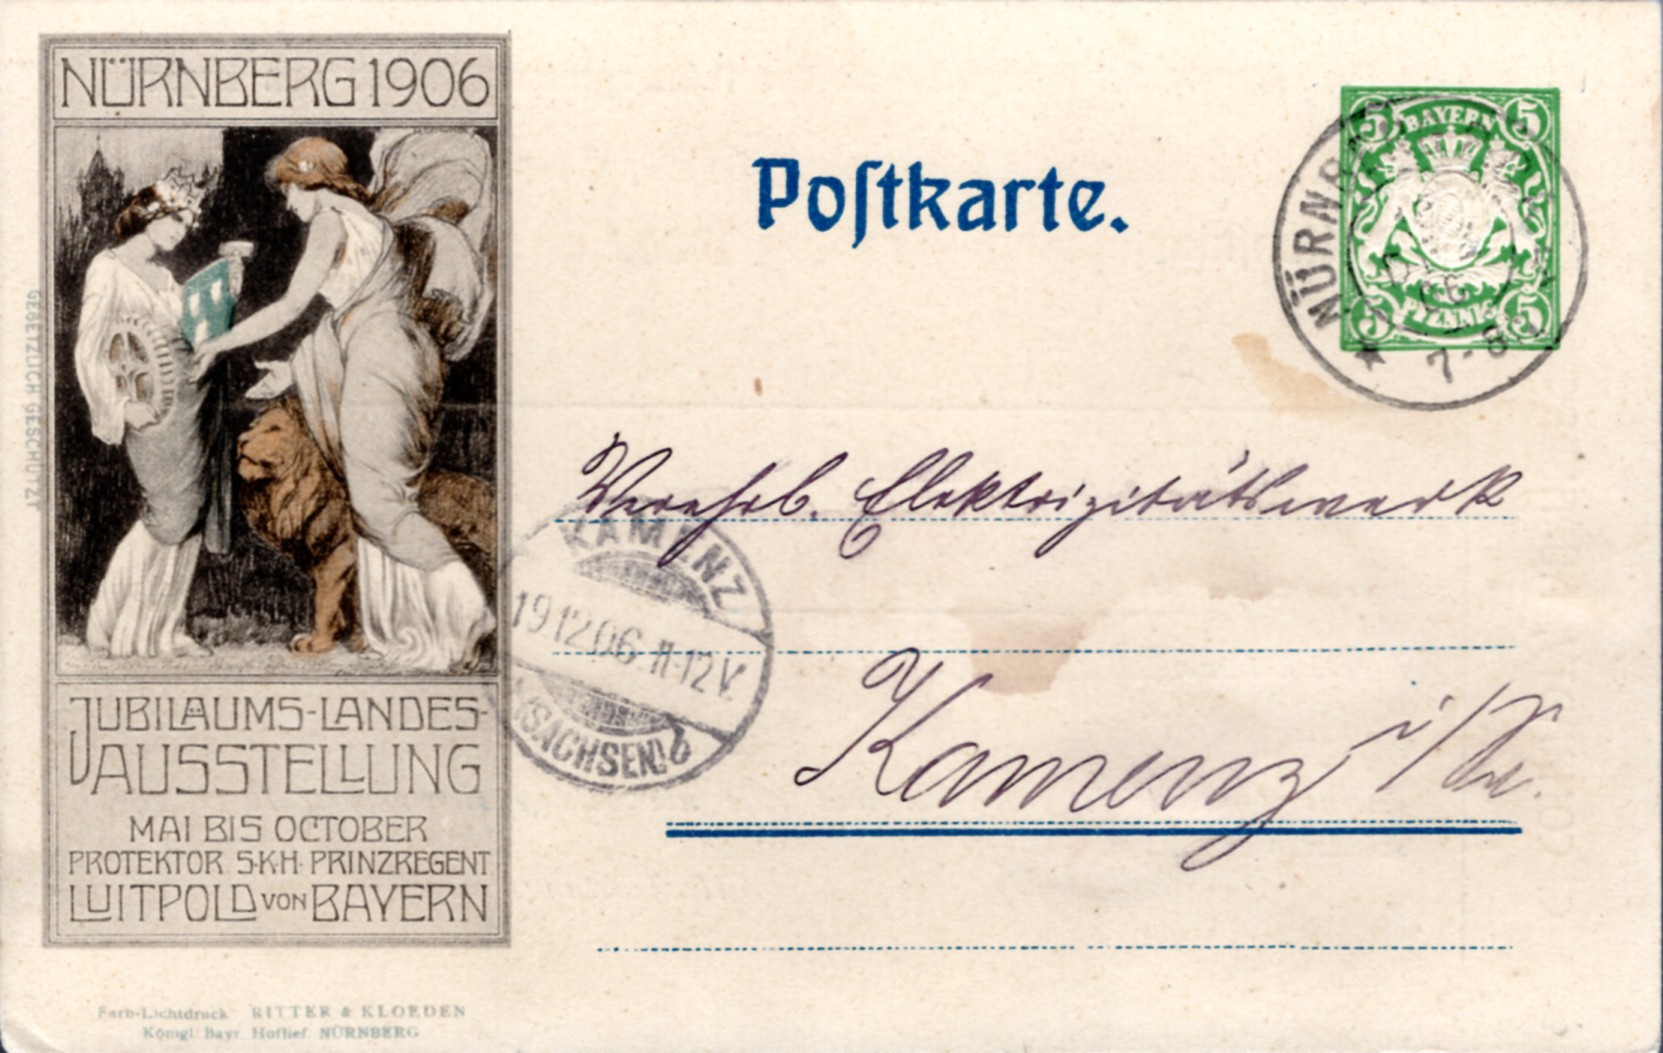 NÜRNBERG 1906
JUBILÄUMS-LANDES-
AUSSTELLUNG
MAI BIS OCTOBER
PROTEKTOR S.K.H. PRINZREGENT
LUITPOLD VON BAYERN
GESETZLICH GESCHÜTZT
Farb-Lichtdruck RITTER & KLOEDEN
Königl. Bayr. Hoflief. NÜRNBERG
Poſtkarte.
5 BAYERN 5
5 PFENNIG 5
7-8
Verehrl. Elektrizitätswerk
KAMENZ
19 12 06 11-12 V.
(SACHSEN) b
Kamenz i/Sa.